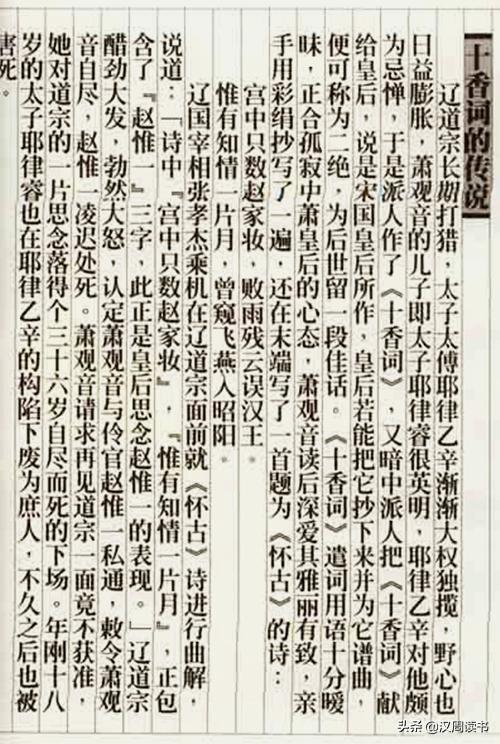 十香词的传说
辽道宗长期打猎，太子太傅耶律乙辛渐渐大权独揽，野心也
日益膨胀，萧观音的儿子即太子耶律睿很英明，耶律乙辛对他颇
为忌惮，于是派人作了《十香词》，又暗中派人把《十香词》献
给皇后，说是宋国皇后所作，皇后若能把它抄下来并为它谱曲，
便可称为二绝，为后世留一段佳话。《十香词》遣词用语十分暧
昧，正合孤寂中萧皇后的心态，萧观音读后深爱其雅丽有致，亲
手用彩绢抄写了一遍，还在末端写了一首题为《怀古》的诗：
宫中只数赵家妆，败雨残云误汉王。
惟有知情一片月，曾窥飞燕入昭阳。
辽国宰相张孝杰乘机在辽道宗面前就《怀古》诗进行曲解，
说道：「诗中『宫中只数赵家妆』，『惟有知情一片月』，正包
含了『赵惟一』三字，此正是皇后思念赵惟一的表现。」辽道宗
醋劲大发，勃然大怒，认定萧观音与伶官赵惟一私通，敕令萧观
音自尽，赵惟一凌迟处死。萧观音请求再见道宗一面竟不获准，
她对道宗的一片思念落得个三十六岁自尽而死的下场。年刚十八
岁的太子耶律睿也在耶律乙辛的构陷下废为庶人，不久之后也被
害死。
头条 @汉周读书